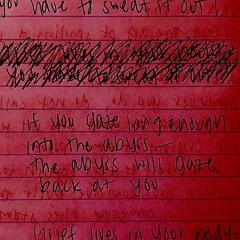 you have to sweat it out!
if you gaze long enough
into the abyss—
the abyss will gaze
back at you
grief lives in your body